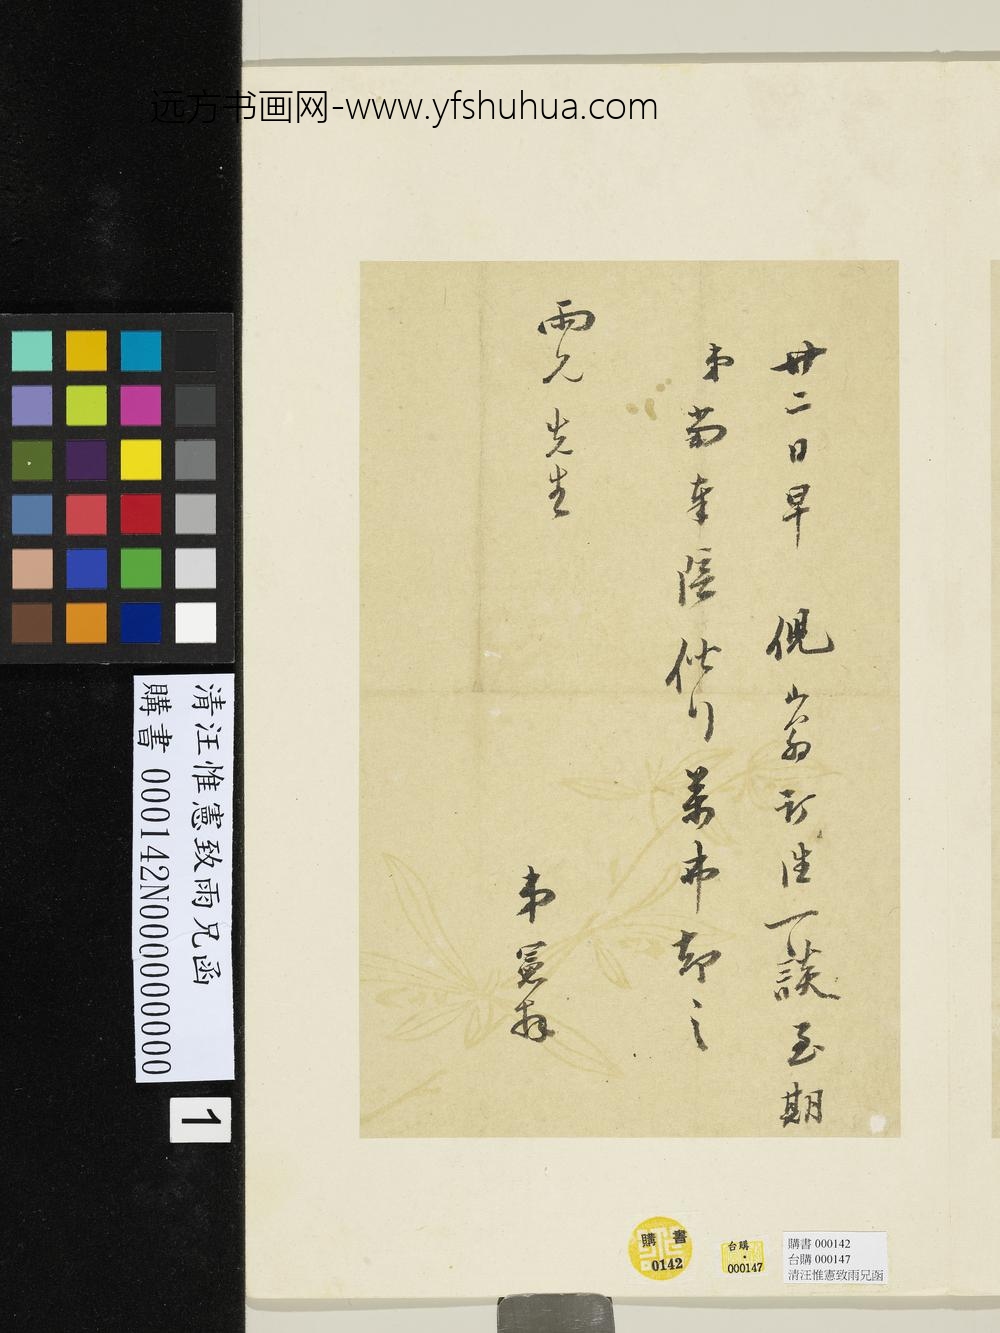 远方书画网-www.yfshuhua.com
廿二日早 倪山翁訂往一談至期
弟當奉陪偕行萬弗却之
雨兄先生
弟憲拜
清汪惟憲致雨兄函
購書 000142N000000000
1
購書
0142
台購
000147
購書 000142
台購 000147
清汪惟憲致雨兄函